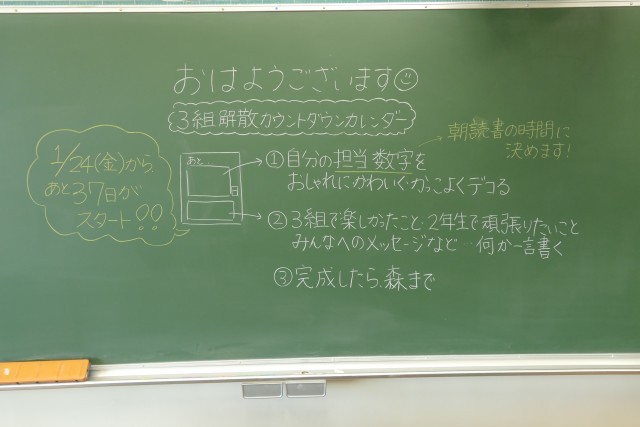 おはようございます☺
3組解散カウントダウンカレンダー
1/24(金)から、
あと37日が
スタート!!
あと
日
①自分の担当数字を
おしゃれにかわいく・かっこよくデコる
朝読書の時間に
決めます!
②3組で楽しかったこと・2年生で頑張りたいこと
みんなへのメッセージなど…何か一言書く
③完成したら、森まで